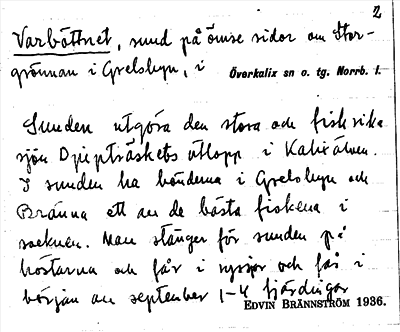 2
Varbåttnet, sund på ömse sidor om Stor-
grönnan i Grelsbyn, i Överkalix sn o. tg. Norrb. l.
Sunden utgöra den stora och fiskrika
sjön Djupträskets utlopp i Kalixälven.
I sunden ha bönderna i Grelsbyn och
Bränna ett av de bästa fiskena i
socknen. Man stänger för sunden på
höstarna och får i ryssjor och får i
början av september 1-4 fjärdingar
EDVIN BRÄNNSTRÖM 1936.